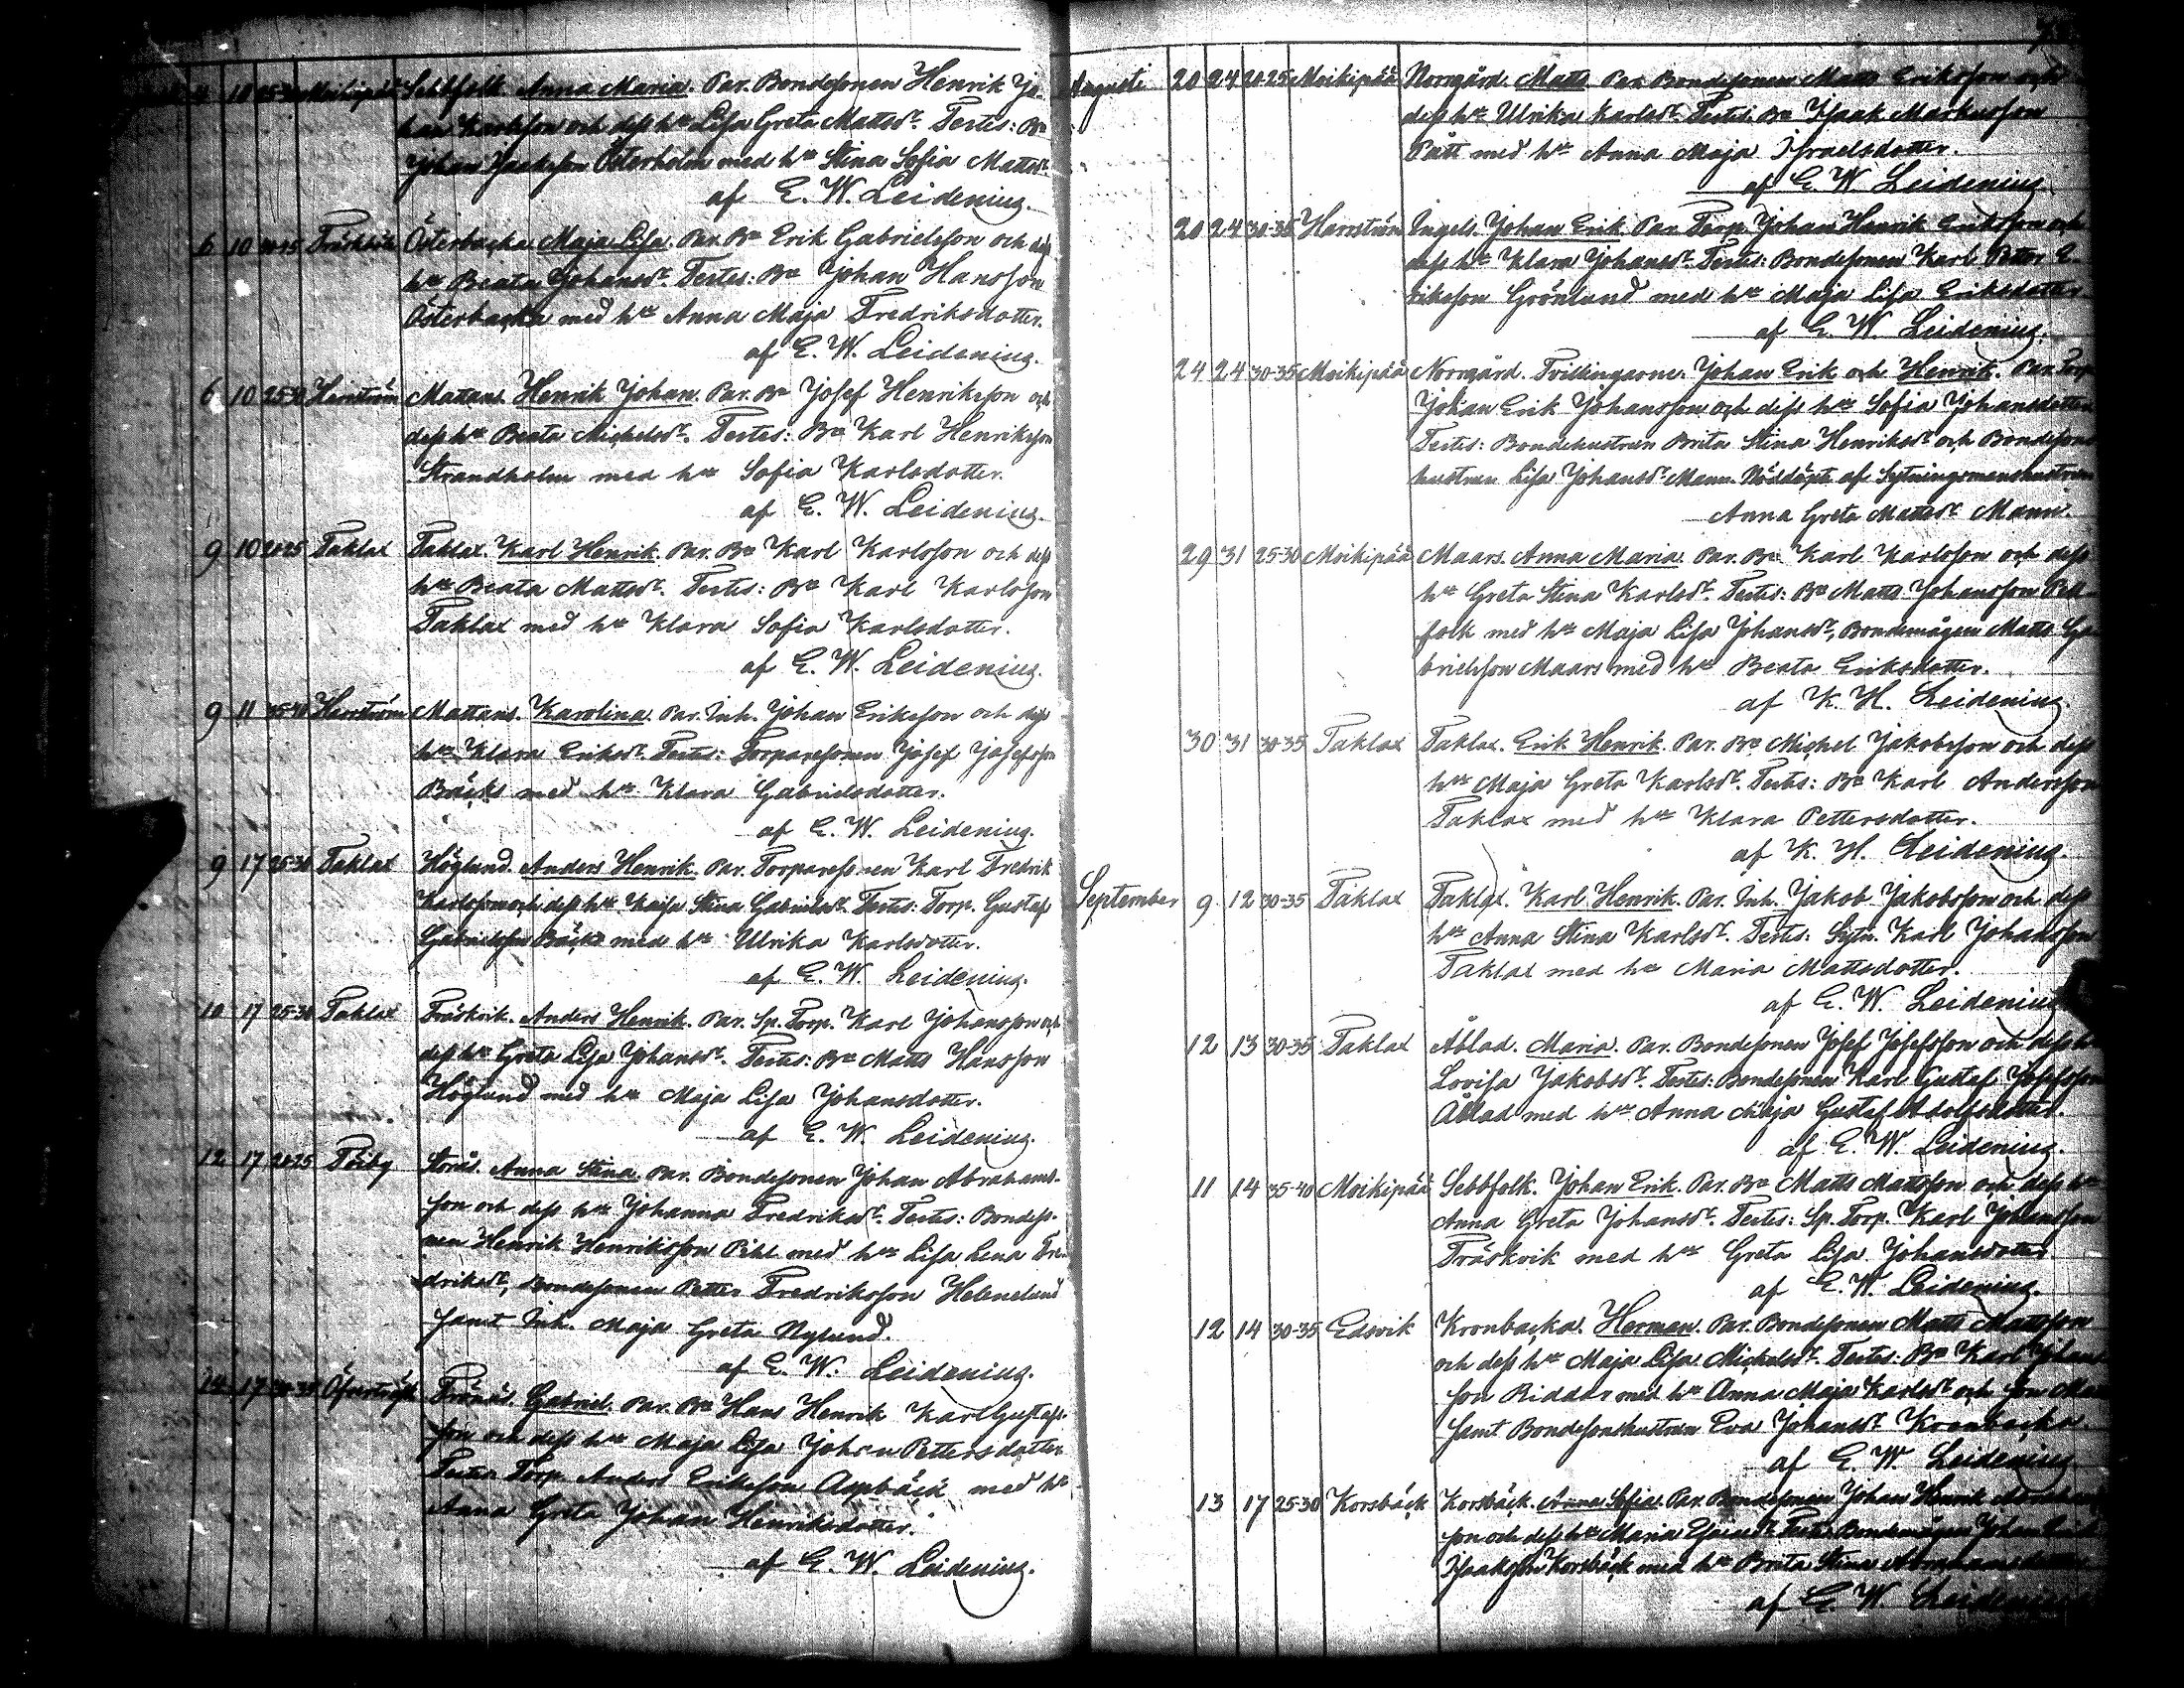 4 10 25-30 Moikipää Sebbfolk. Anna Maria. Par. Bondesonen Henrik Jo-
han Karlsson och dess hu Lisa Greta Mattsdr. Testes: Bn
Johan Isaksson Österholm med hu Stina Sofia Mattsdr
af E. W. Leidenius.
6 10 Träskböle Österbacka. Maja Lisa. Par. Bn Erik Gabrielsson och dess
hu Beata Johansdr. Testes: Bn Johan Hansson
Österbacka med hu Anna Maja Fredriksdotter.
af E. W. Leidenius.
6 10 25-30 Harrström Mattans. Henrik Johan. Par. Bn Josef Henriksson och
dess hu Beata Michelsdr. Testes: Bn Karl Henriksson
Strandholm med hu Sofia Karlsdotter.
af E. W. Leidenius.
9 10 20-25 Taklax Taklax. Karl Henrik. Par. Bn Karl Karlsson och dess
hu Beata Mattsdr. Testes: Bn Karl Karlsson
Taklax med hu Klara Sofia Karlsdotter.
af E. W. Leidenius.
9 11 35-40 Harrström Mattans. Karolina. Par. Inh. Johan Eriksson och dess
hu Klara Eriksdr. Testes: Torparesonen Josef Josefsson
Bäcks med hu Klara Gabrielsdotter.
af E. W. Leidenius.
9 17 25-30 Taklax Höglund. Anders Henrik. Par. Torparesonen Karl Fredrik
Karlsson och dess hu Kajsa Stina Gabrielsdr. Testes: Torp. Gustaf
Gabrielsson Bäcks med hu Ulrika Karlsdotter.
af E. W. Leidenius.
10 17 25-30 Taklax Träskvik. Anders Henrik. Par. Sp. Torp. Karl Johansson och
dess hu Greta Lisa Johansdr. Testes: Bn Matts Hansson
Höglund med hu Maja Lisa Johansdotter.
af E. W. Leidenius.
12 17 20-25 Töiby Storås. Anna Stina. Par. Bondesonen Johan Abrahams-
son och dess hu Johanna Fredriksdr. Testes: Bondeso-
nen Henrik Henriksson Pihl med hu Lisa Lena Fre-
driksdr, Bondesonen Petter Fredriksson Helenelund
samt Inh. Maja Greta Nylund.
af E. W. Leidenius.
14 17 30-35 Öfverträsk Gabriel. Par. Bn Hans Henrik Karl Gustafs-
son och dess hu Maja Lisa Johan Pettersdotter
Testes: Torp. Anders Eriksson Aspbäck med hu
Anna Greta Johan Henriksdotter.
af E. W. Leidenius.
Augusti 20 24 20-25 Moikipää Norrgård. Matts. Par. Bondesonen Matts Eriksson och
dess hu Ulrika Karlsdr. Testes: Bn Isaak Markusson
Pått med hu Anna Maja Israelsdotter.
af E. W. Leidenius.
20 24 30-35 Harrström Ingels. Johan Erik. Par. Torp. Johan Henrik Eriksson och
dess hu Klara Johansdr. Testes: Bondesonen Karl Petter E-
riksson Grönlund med hu Maja Lisa Eriksdotter
af E. W. Leidenius.
24 24 30-35 Moikipää Norrgård. Tvillingarne. Johan Erik och Henrik. Par. Torp.
Johan Erik Johansson och dess hu Sofia Johansdotter
Testes: Bondehustrun Brita Stina Henriksdr och Bondesons-
hustrun Lisa Johansdr Mann. Nöddöpte af Sytningsmanshustrun
Anna Greta Mattsdr Mann.
29 31 25-30 Moikipää Maars. Anna Maria. Par. Bn Karl Karlsson och dess
hu Greta Stina Karlsdr. Testes: Bn Matts Johansson Pell-
folk med hu Maja Lisa Johansdr, Bondemågen Matts Ga-
brielsson Maars med hu Beata Eriksdotter.
af K. H. Leidenius
30 31 30-35 Taklax Taklax. Erik Henrik. Par. Bn Michel Jakobsson och dess
hu Maja Greta Karlsdr. Testes: Bn Karl Andersson
Taklax med hu Klara Pettersdotter.
af K. H. Leidenius.
September 9 12 30-35 Taklax Taklax. Karl Henrik. Par. Inh. Jakob Jakobsson och dess
hu Anna Stina Karlsdr. Testes: Sytn. Karl Johansson
Taklax med hu Maria Mattsdotter.
af E. W. Leidenius
12 13 30-35 Taklax Åblad. Maria. Par. Bondesonen Josef Josefsson och dess hu
Lovisa Jakobsdr. Testes: Bondesonen Karl Gustaf Josefsson
Åblad med hu Anna Maja Gustaf Adolfsdotter.
af E. W. Leidenius.
11 14 35-40 Moikipää Sebbfolk. Johan Erik. Par. Bn Matts Mattsson och dess hu
Anna Greta Johansdr. Testes: Sp. Torp. Karl Johansson
Träskvik med hu Greta Lisa Johansdotter
af E. W. Leidenius.
12 14 30-35 Edsvik Kronbacka. Herman. Par. Bondesonen Matts Mattsson
och dess hu Maja Lisa Michelsdr. Testes: Bn Karl Johans-
son Riddar med hu Anna Maja Karlsdr och son
samt Bondesonshustrun Eva Johansdr Kronbacka.
af E. W. Leidenius
13 17 25-30 Korsbäck Korsbäck. Anna Sofia. Par. Bondesonen Johan Henrik
son och dess hu Maria Testes: Bondemågen Johan Erik
Isaksson Korsbäck med hu Brita Stina Abrahamsdotter
af E. W. Leidenius